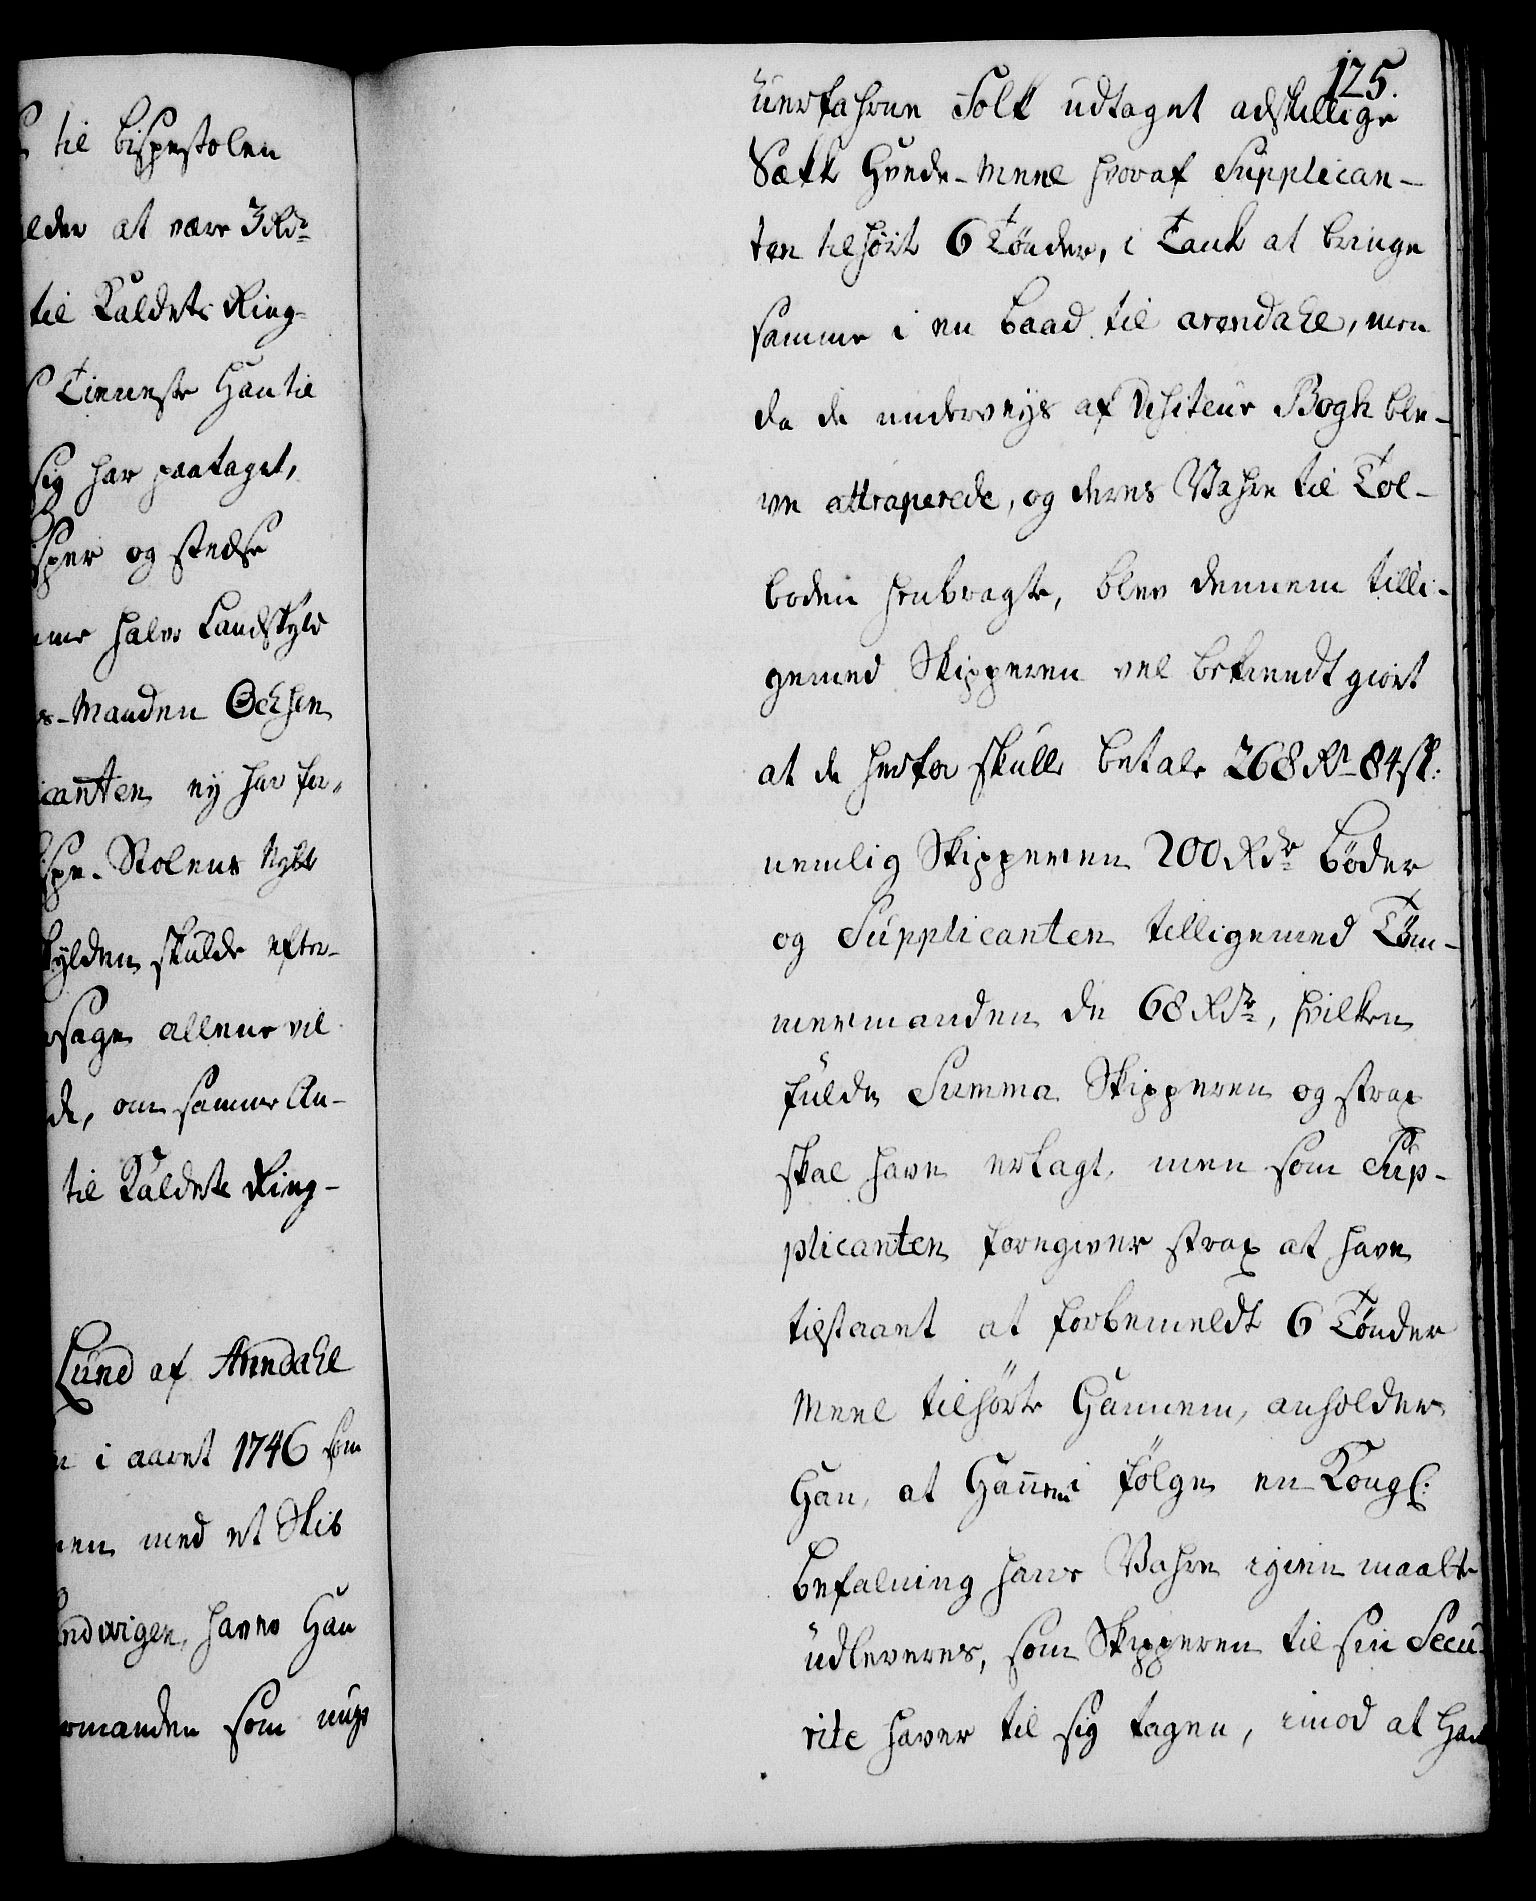 til Bispestolen
at være 3 Rdr
til Kaldets Ring-
Tieneste Han til
sig har paataget,
og stedse
halve Landskyld
Manden Ochsen
canten ey har for-
Stolens
skylden skulde efter-
allene vil
de, om samme An-
til Kaldets Ring-
Lund af Arendahl
i aaret 1746 som
med et Skib
haver Han
manden som
125.
uerfahrne Folk udtaget adskillige
Sækk Hvede-Meel hvoraf Supplican-
ten tilhørt 6 Tønder, i Tank at bringe
samme i en Baad til Arendahl, men
da de underveys af Visiteur Bogh ble-
ve attraperede, og deres Vahre til Tol-
boden henbragte, blev dennem tilli-
gemed Skipperen vel bekiendtgiort
at de herfor skulle betale 268 Rdr 84 sk:
nemlig Skipperen 200 Rdr Bøder
og Supplicanten tilligemed Tøm-
mermanden de 68 Rdr, hvilken
fulde Summa Skipperen og strax
skal have erlagt, men som Sup-
plicanten foregiver strax at have
tilstaaet at forbemeldt 6 Tønder
Meel tilhørte Hannem, anholder
Han, at Hannem i følge en Kongl:
Befalning hans Vahre igien maatte
udleveres, som Skipperen til sin Secu-
rite haver til sig tagen, imod at Han